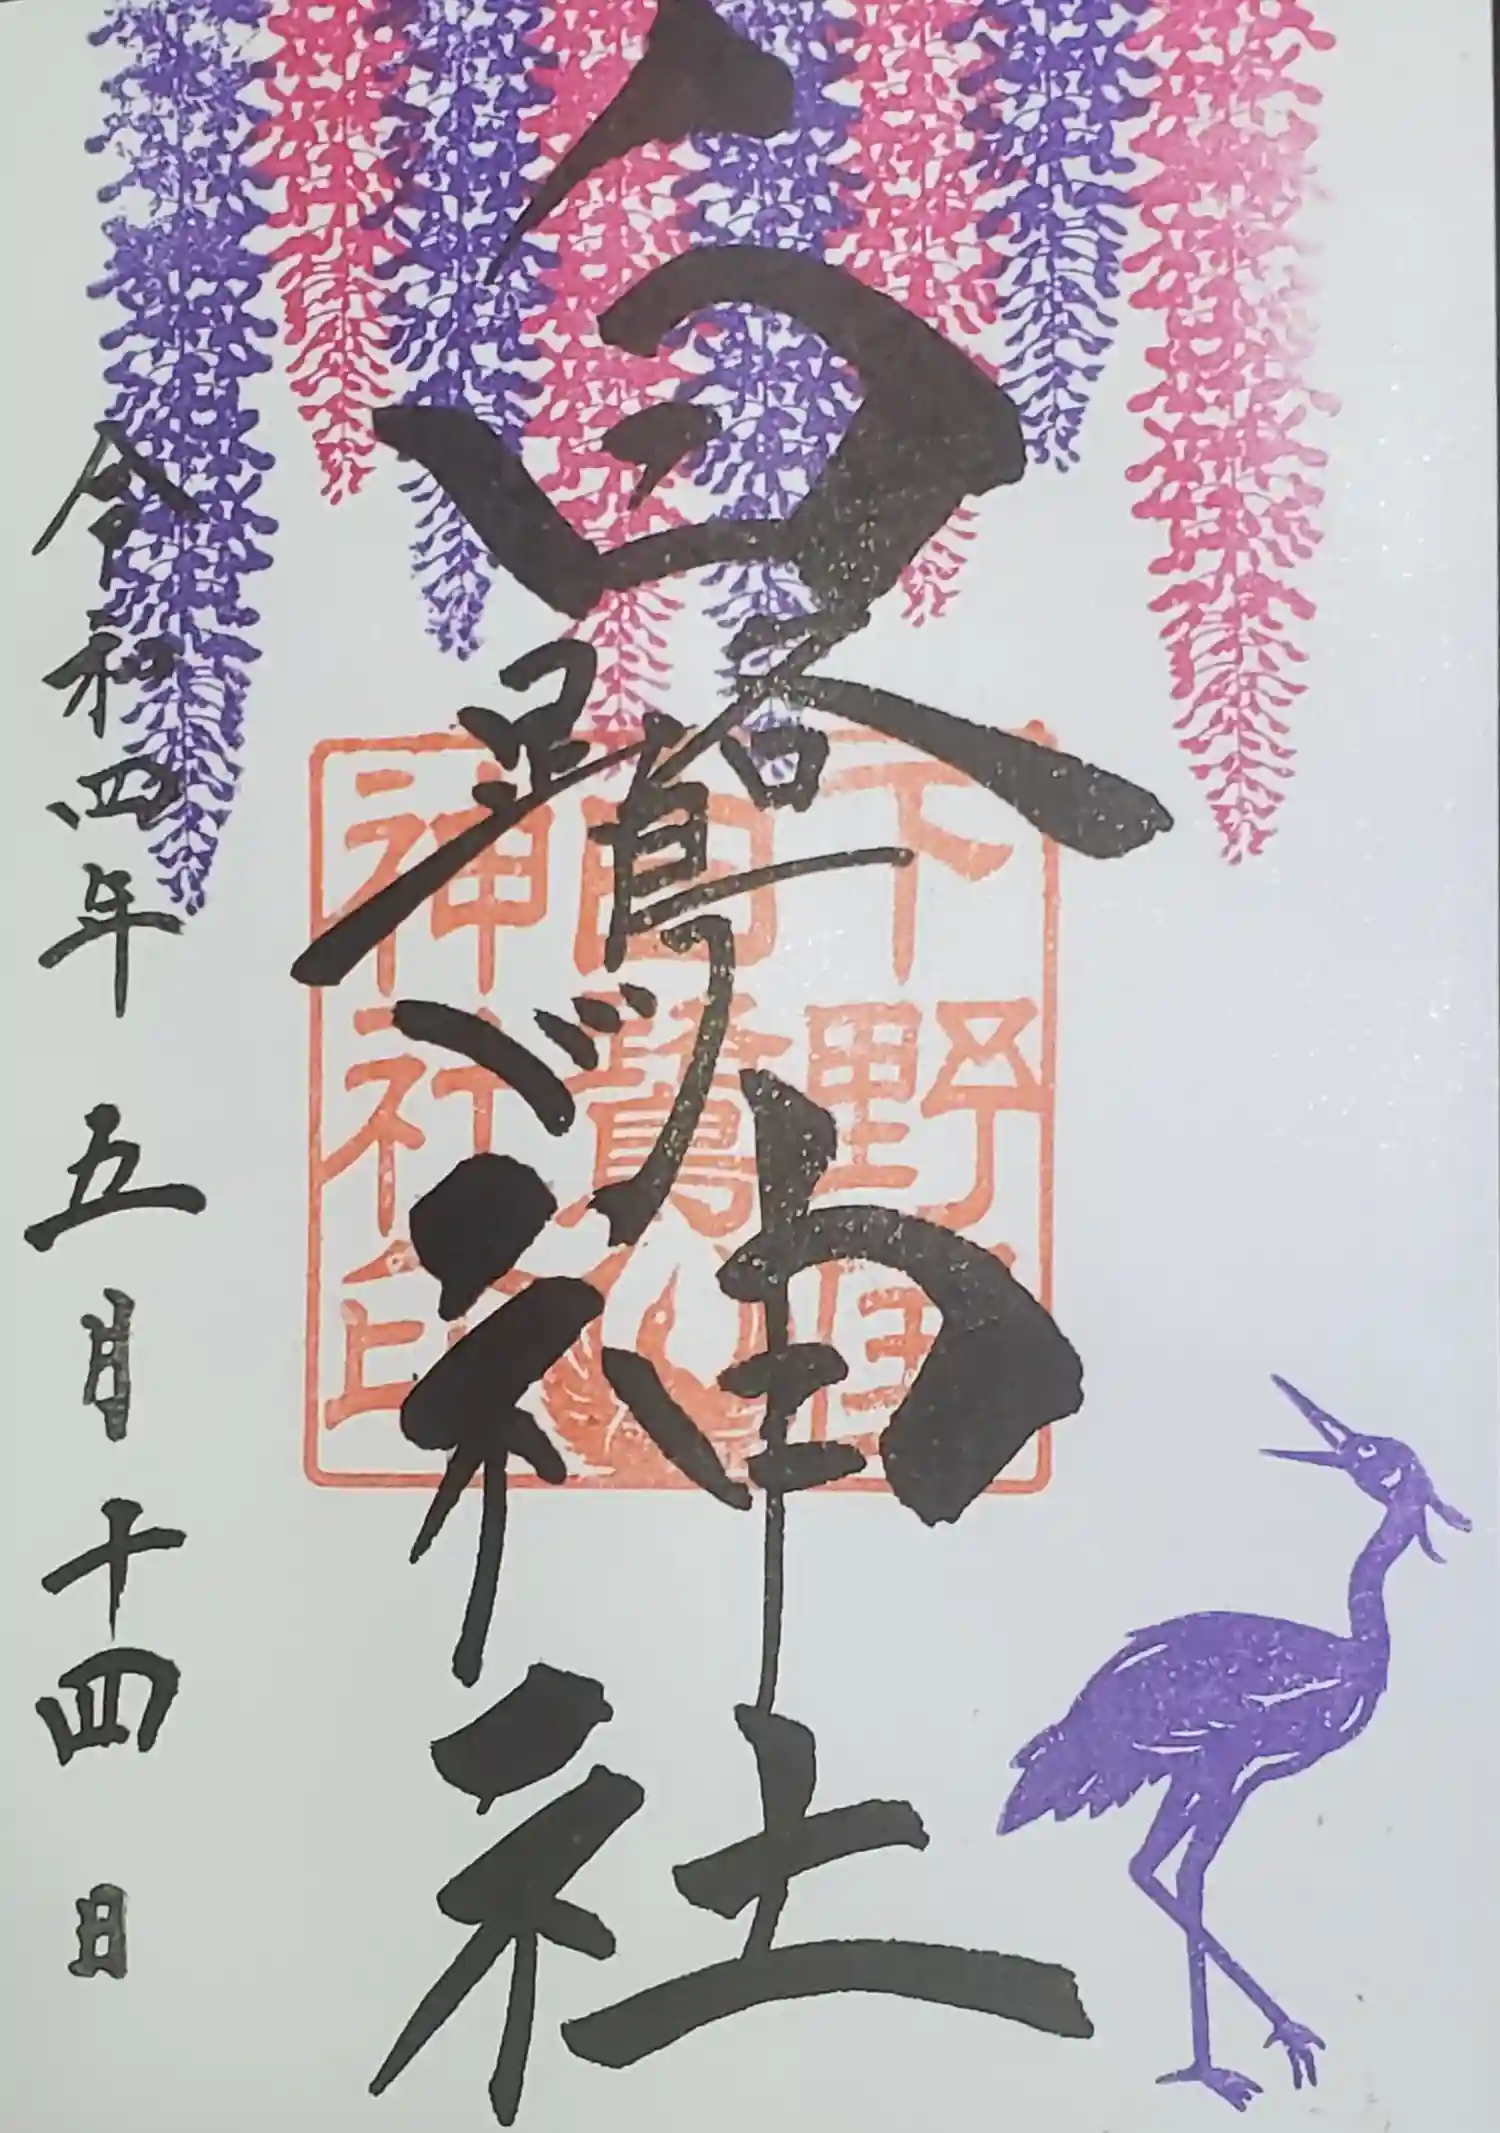 白鷺神社
下野
白鷺
神社印
令和四年五月十四日